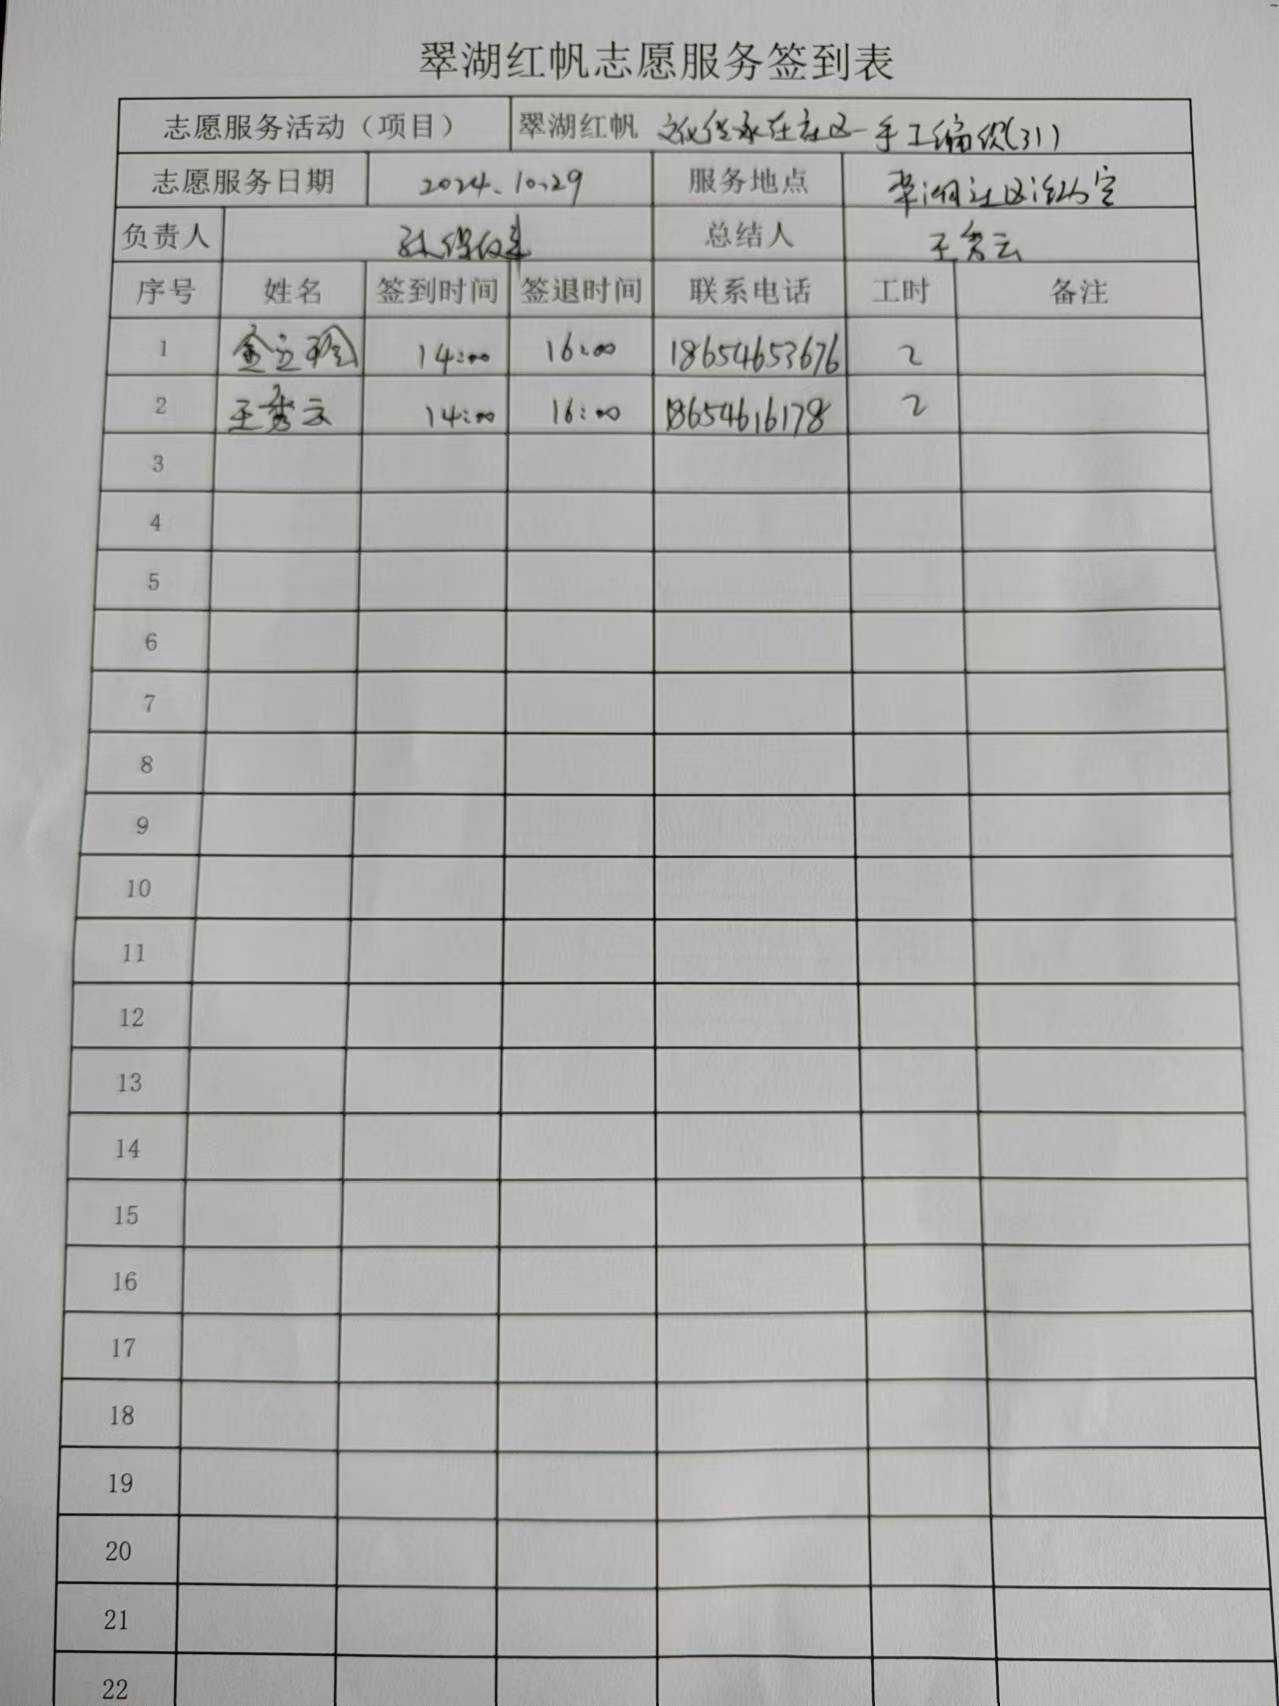 翠湖红帆志愿服务签到表
志愿服务活动（项目） 翠湖红帆 文化传承在社区-手工编织(31)
志愿服务日期 2024.10.29 服务地点 翠湖社区活动室
负责人 总结人 王秀云
序号 姓名 签到时间 签退时间 联系电话 工时 备注
1 14:00 16:00 18654653676 2
2 王秀云 14:00 16:00 18654616178 2
3
4
5
6
7
8
9
10
11
12
13
14
15
16
17
18
19
20
21
22